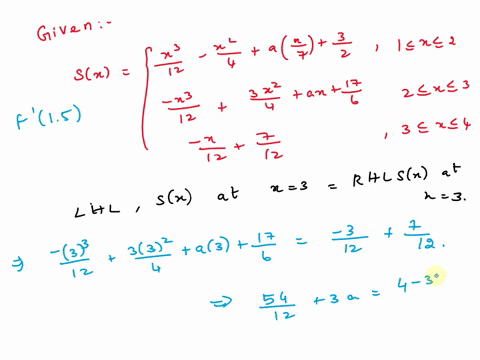 Given:-
S(x) = { x³/12 - x²/4 + a(x/7) + 3/2 , 1 ≤ x ≤ 2
-x³/12 + 3x²/4 + ax + 17/6 2 ≤ x ≤ 3
-x/12 + 7/12 , 3 ≤ x ≤ 4
f'(1.5)
LHL, S(x) at x=3 = RHL S(x) at x=3.
⇒ -(3)³/12 + 3(3)²/4 + a(3) + 17/6 = -3/12 + 7/12.
⇒ 54/12 + 3a = 4-3